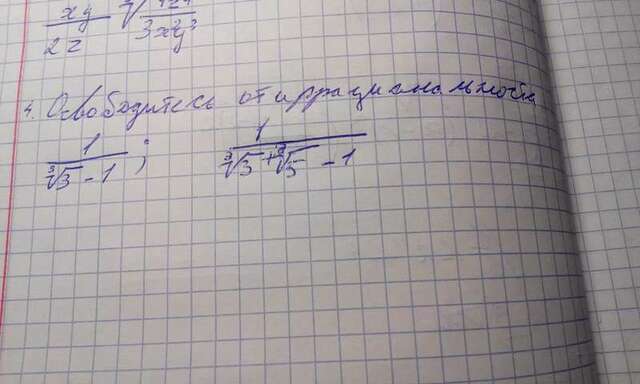 xy
2z 3xy³
4. Освободитесь от иррациональности
1/(∛3 - 1) ; 1/(∛3 + ∛5 - 1)